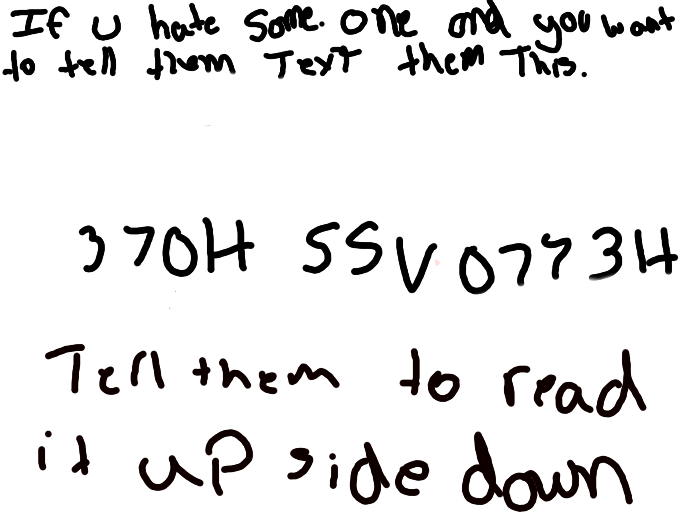 If u hate some. one and you want
to tell them Text them This.
370H SSV0773H
Tell them to read
it up side down